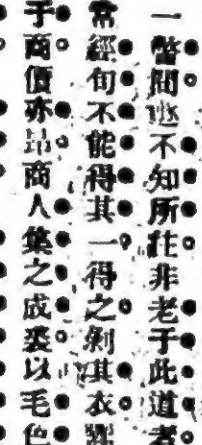 一瞥間不知所往非老于此道者
常經旬不能得其一得之剝其衣
于商價亦昂商人集之成裘以毛色